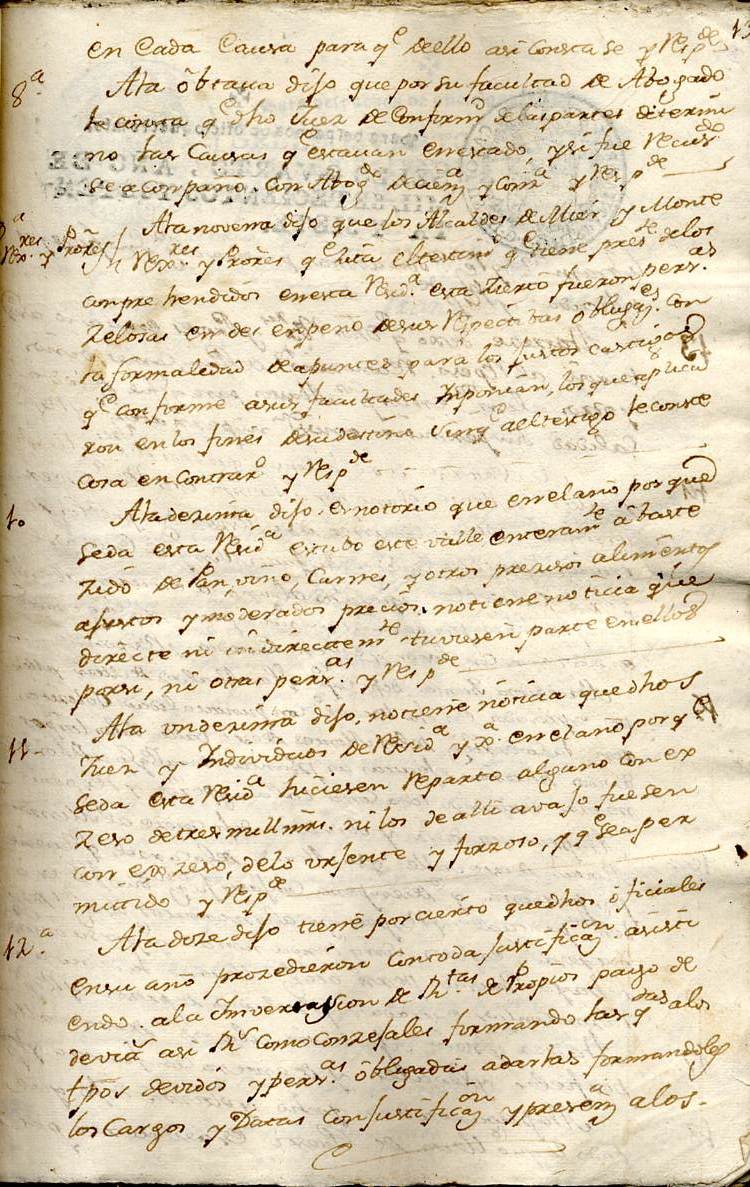 13
en Cada Causa para qe. dello asi Consta se y Respde.
8ª.
A la obtaua dijo que por su facultad de Abogado
le consta qe. dho Juez de Confirmn. de las partes determi
no las Causas qe. estauan en estado, y si fue Recusdo.
se aconpaño con Abogdo. de cienª. y conzª. y Respde.
A la novena dijo que los Alcaldes de Mier y Monte
Rexres. y Prores.
Rexres. y Prores. qe. zita el testimo. qe. tiene preste. de los
conprehendidos en esta Residª. esta zierto fueron persas.
zelosas en desenpeño de sus Respectibas obligaes. con
la formaledad de apuntes para los justos castigos
qe. conforme a sus facultades Inponian, los que aplica
ron en los fines de su destino sin qe. al testigo le conste
cosa en Contraro. y Respde.
10
A la dezima dijo es notorio que en el año por que
se da esta Residª. estubo este valle enteramte. abaste
zido de Pan, vino, Carnes, y otros prezisos alimentos
a justos y moderados precios, no tiene noticia que
directe ni indirectemte. tuviesen parte en ellos
por si, ni otras persas. y Respde.
11
A la undezima dijo, no tiene noticia que dhos
Juez y Individuos de Residª. y xª. en el año por qe.
se da esta Residª. hiciesen Reparto alguno con ex
zeso de tres mill mrs. ni los de alli avajo fuesen
con exzeso, de lo vrjente y forzoso, y qe. sea per
mitido y Respde.
12ª.
A la doze dijo tiene por cierto que dhos oficiales
en su año prozedieron con toda justificaon. asisti
endo a la Imversion de Rtas. de Propios pago de
devias. asi Rs. como conzejales formando las qdas. a los
tpos devidos y persas. obligadas a darlas formandoles
los Cargos y Datas con justificaon. y presenª. a los